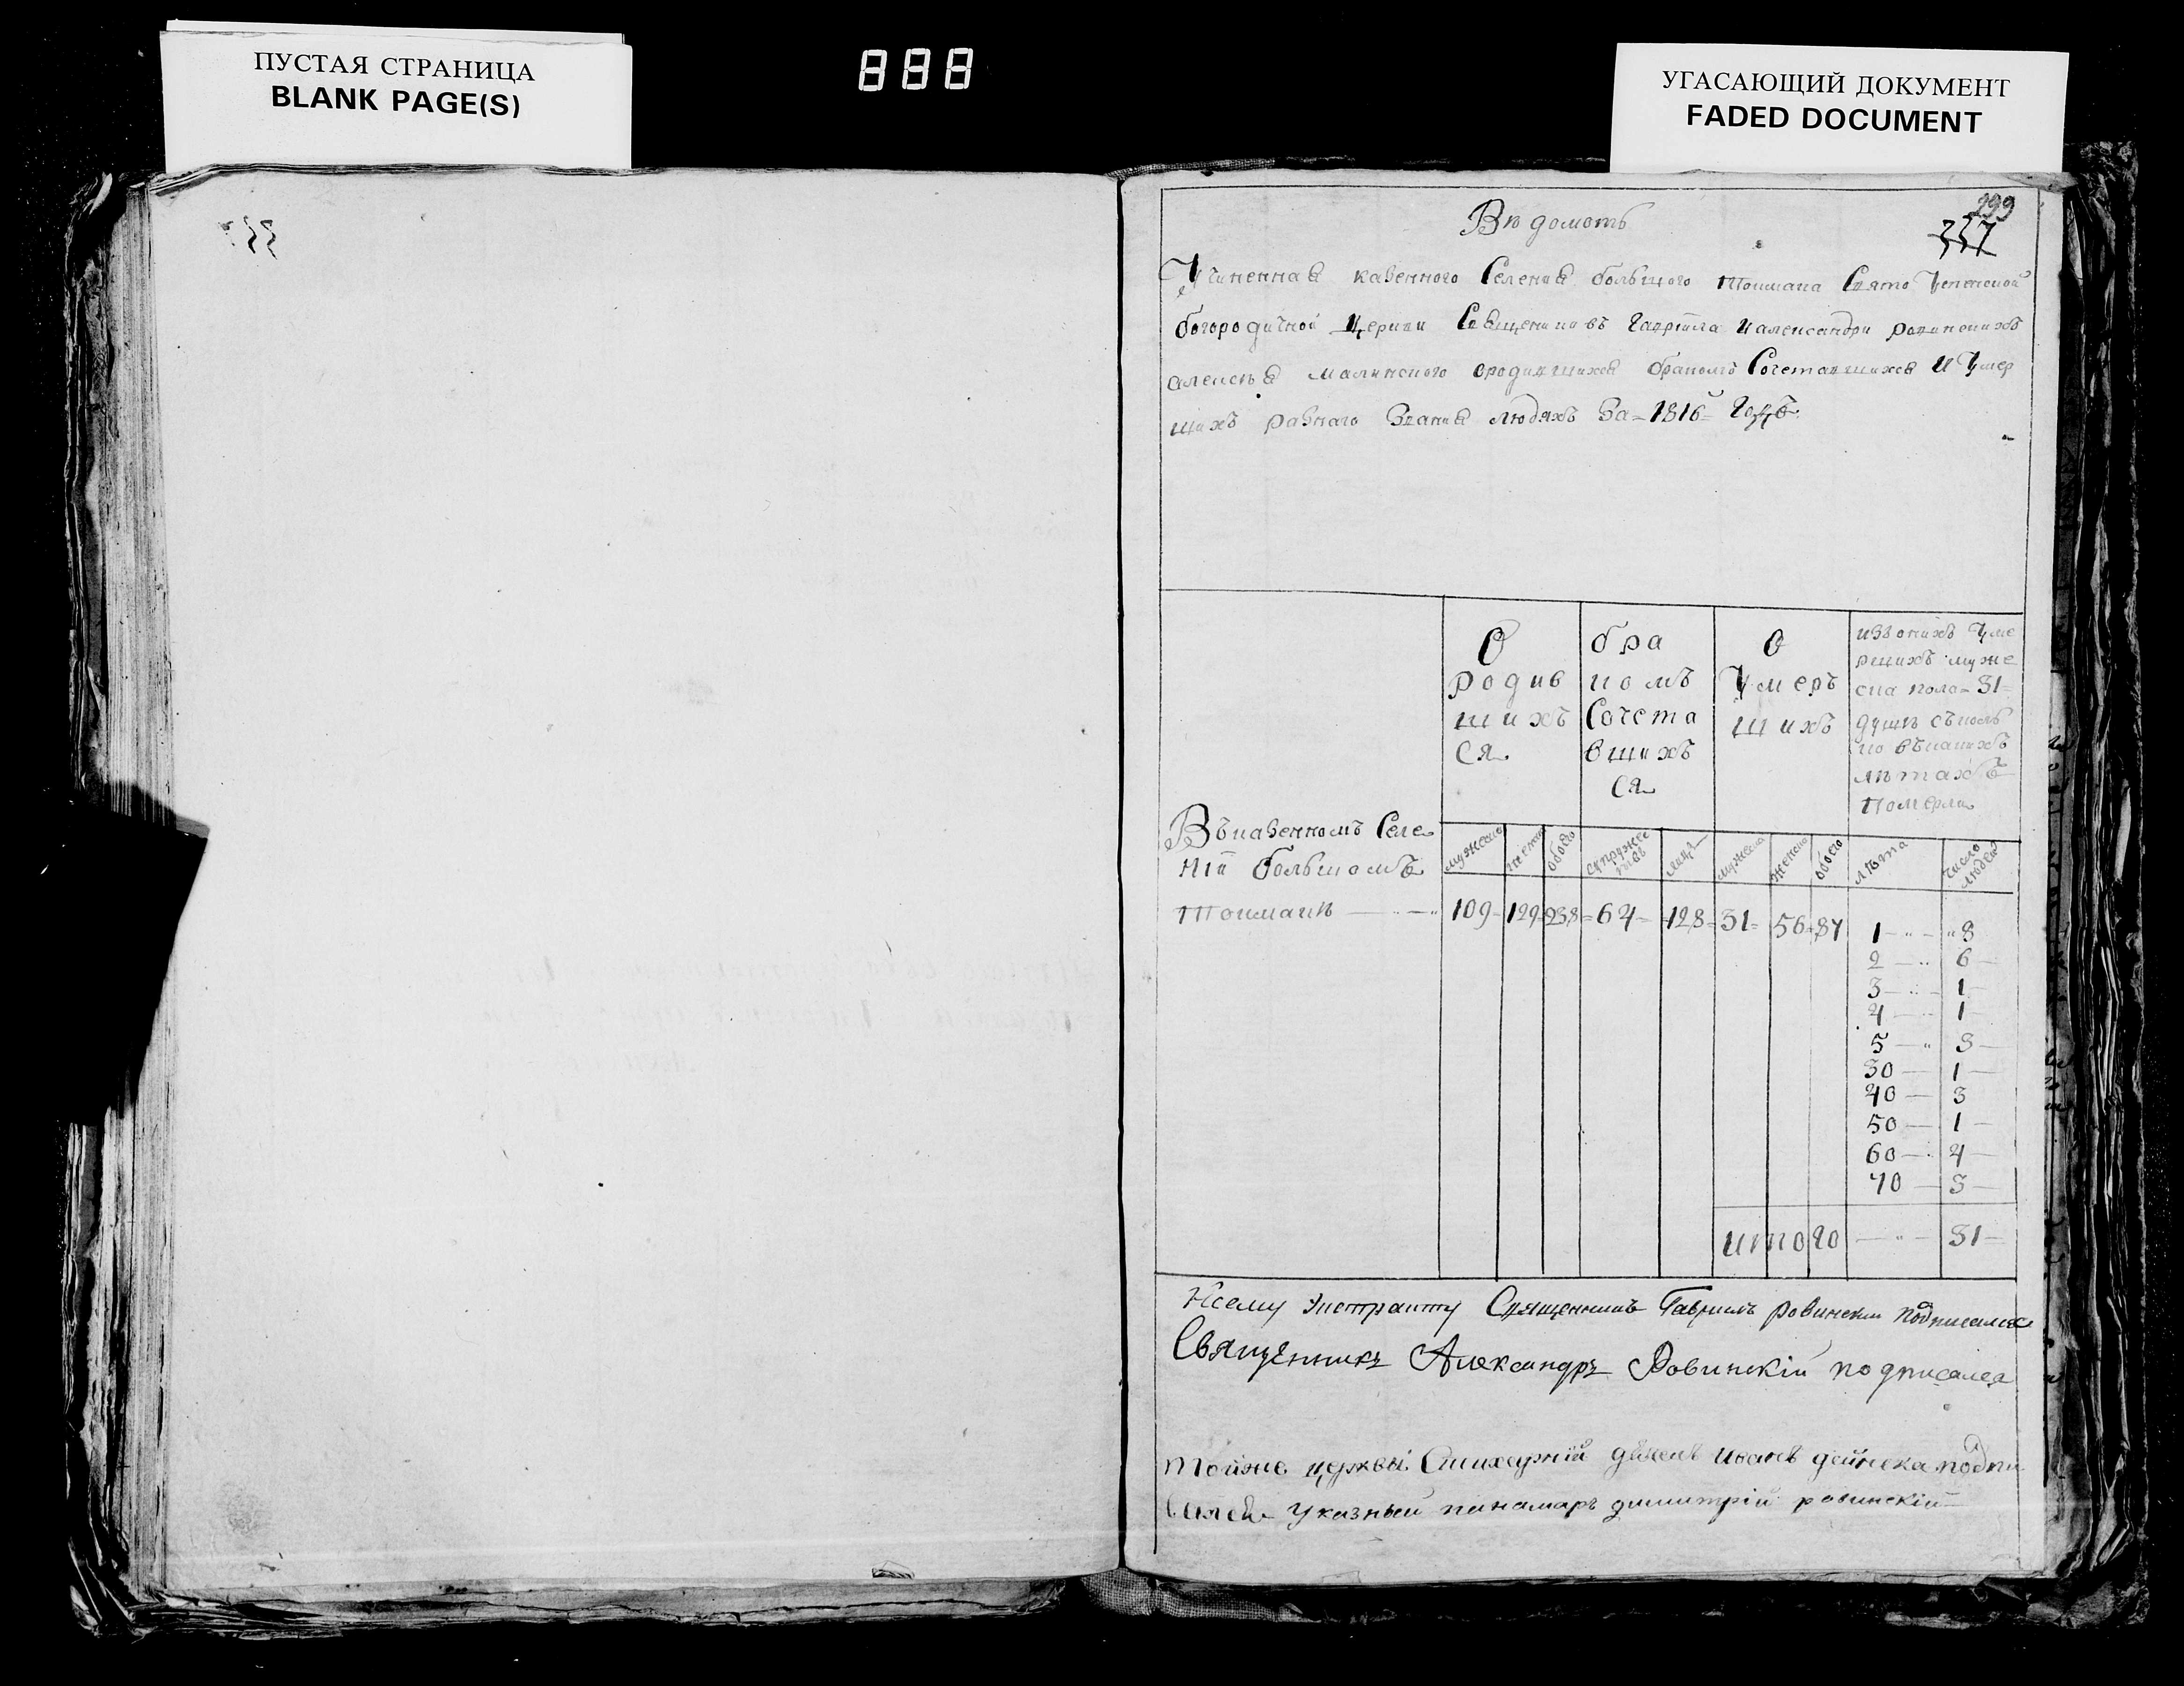 ПУСТАЯ СТРАНИЦА
BLANK PAGE(S)
888
УГАСАЮЩИЙ ДОКУМЕНТ
FADED DOCUMENT
299
337
Вѣдомоть
Учиненная казенного Селения большого Токмака Свято Успенской
богородичной Церкви Священиковъ Гавріила и александра ровинскихъ
алексѣя малинского ородившихся бракомъ Сочетавшихся И Умер
шихъ разнаго Звания людяхъ За-1816- Годъ
О
родив
шихъ
ся
бра
комъ
Сочета
вшихъ
ся
О
Умеръ
шихъ
изъ онихъ Уме
ршихъ муже
ска пола-31-
душъ сколь
ко въкакихъ
лѣтахъ
Померли
мужеско
женско
обоего
супружес
твъ
лицъ
мужеско
женско
обоего
лѣта
число
людей
Въказенномъ Селе
ніи большомъ
Токмакѣ 109 129 238 64 128 31 56 87
1 8
2 6
3 1
4 1
5 3
30 1
40 3
50 1
60 4
70 3
итого 31
Ксему Экстракту Священникъ Гавриилъ ровински подписался
Священникъ Александръ Ровинскій подписался
тойже церкви Стихарній дяконъ иванъ дейнека подпи
сался Указный панамаръ димитрій ровинскій